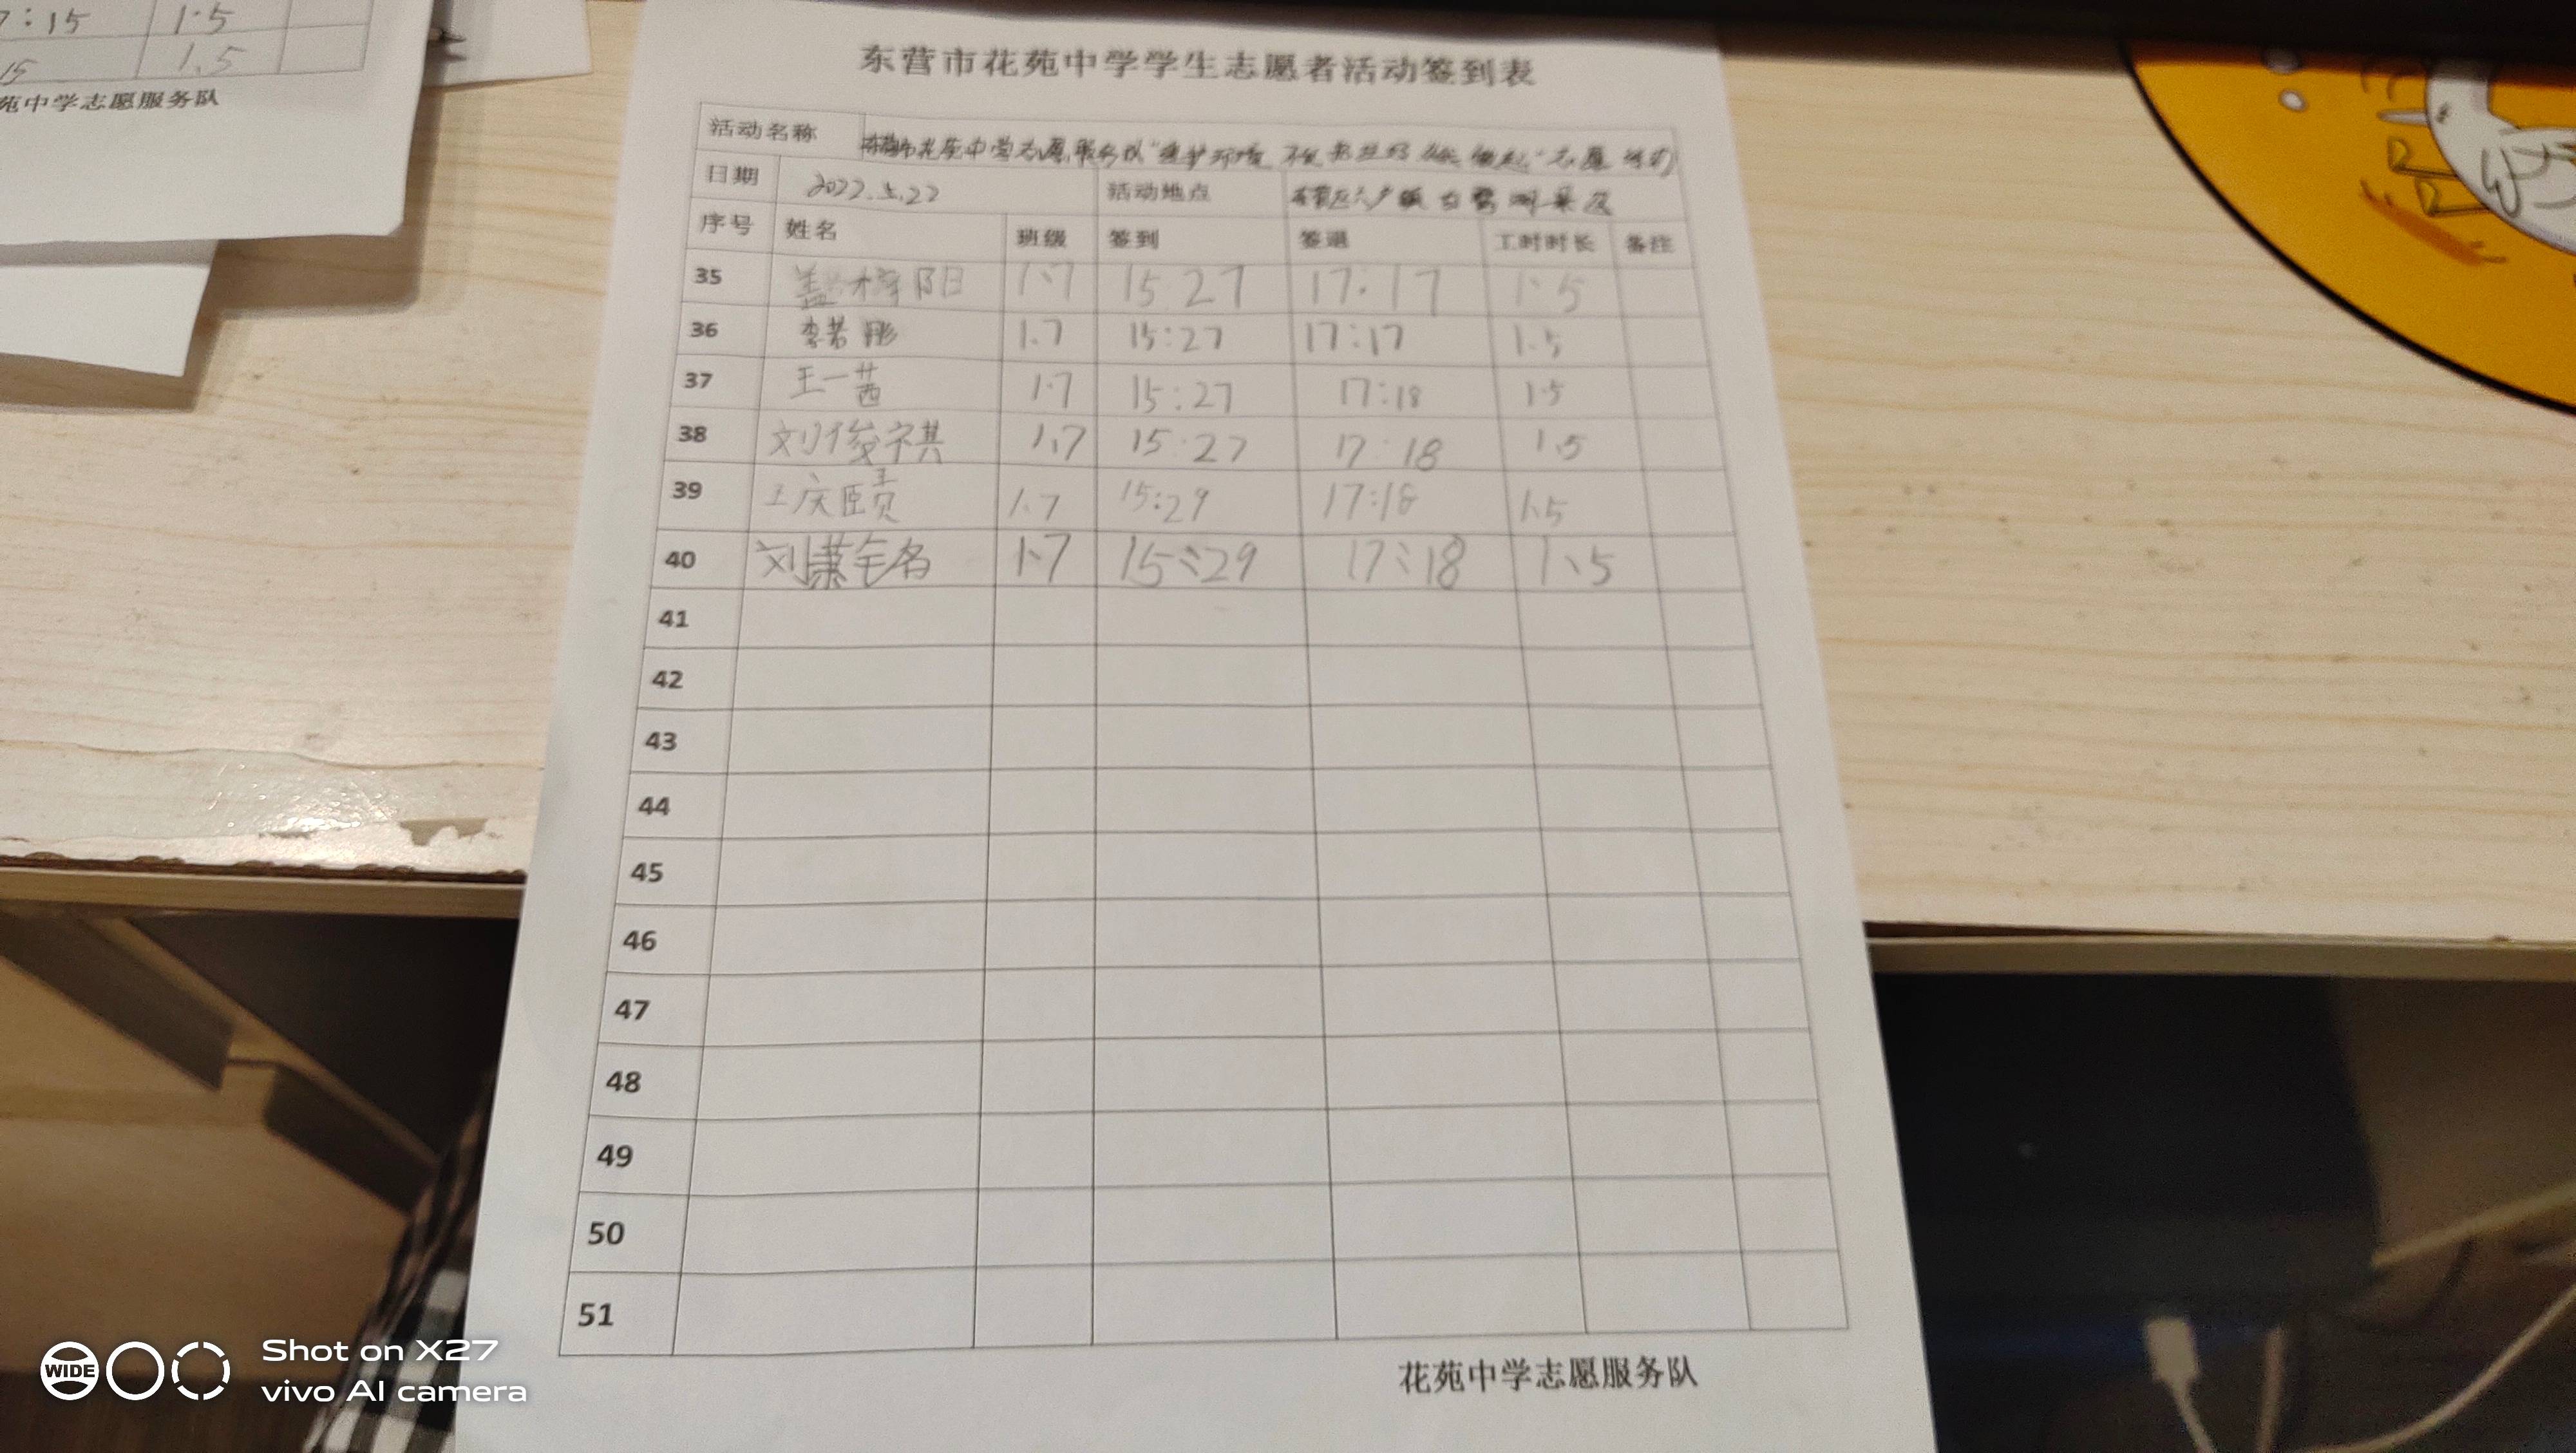 7:15 1.5
15 1.5
苑中学志愿服务队
东营市花苑中学学生志愿者活动签到表
活动名称 东营市花苑中学志愿服务队"维护环境 志愿
日期 2022.5.22 活动地点 东营区六户镇
序号 姓名 班级 签到 签退 工时时长 备注
35 盖梓阳 1.7 15 27 17:17 1.5
36 李若彤 1.7 15:27 17:17 1.5
37 王一茜 1.7 15:27 17:18 1.5
38 刘俊祺 1.7 15:27 17:18 1.5
39 王庆 1.7 15:29 17:18 1.5
40 刘 1.7 15:29 17:18 1.5
41
42
43
44
45
46
47
48
49
50
51
花苑中学志愿服务队
WIDE
Shot on X27
vivo AI camera